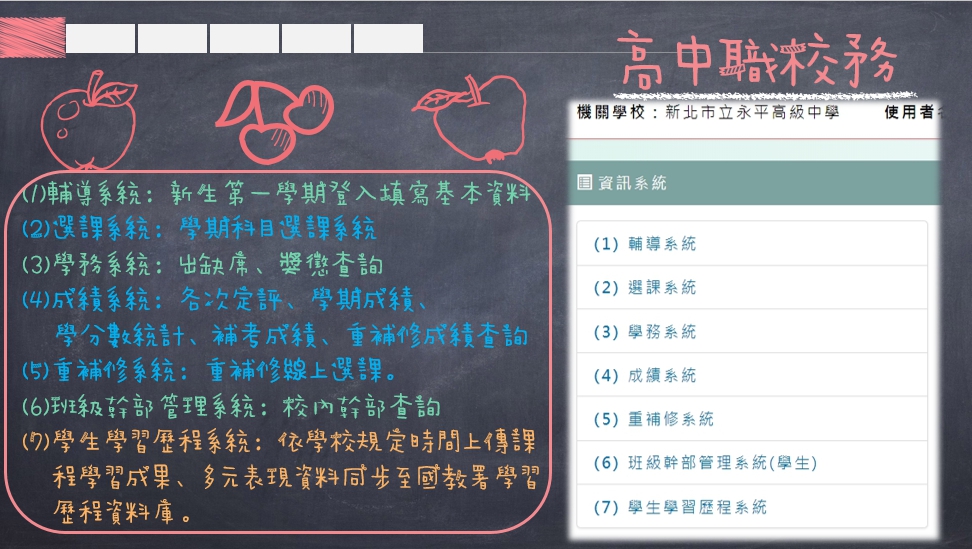 高中職校務
(1)輔導系統：新生第一學期登入填寫基本資料
(2)選課系統：學期科目選課系統
(3)學務系統：出缺席、獎懲查詢
(4)成績系統：各次定評、學期成績、
學分數統計、補考成績、重補修成績查詢
(5)重補修系統：重補修線上選課。
(6)班級幹部管理系統：校內幹部查詢
(7)學生學習歷程系統：依學校規定時間上傳課
程學習成果、多元表現資料同步至國教署學習
歷程資料庫。
機關學校：新北市立永平高級中學 使用者
資訊系統
(1) 輔導系統
(2) 選課系統
(3) 學務系統
(4) 成績系統
(5) 重補修系統
(6) 班級幹部管理系統(學生)
(7) 學生學習歷程系統